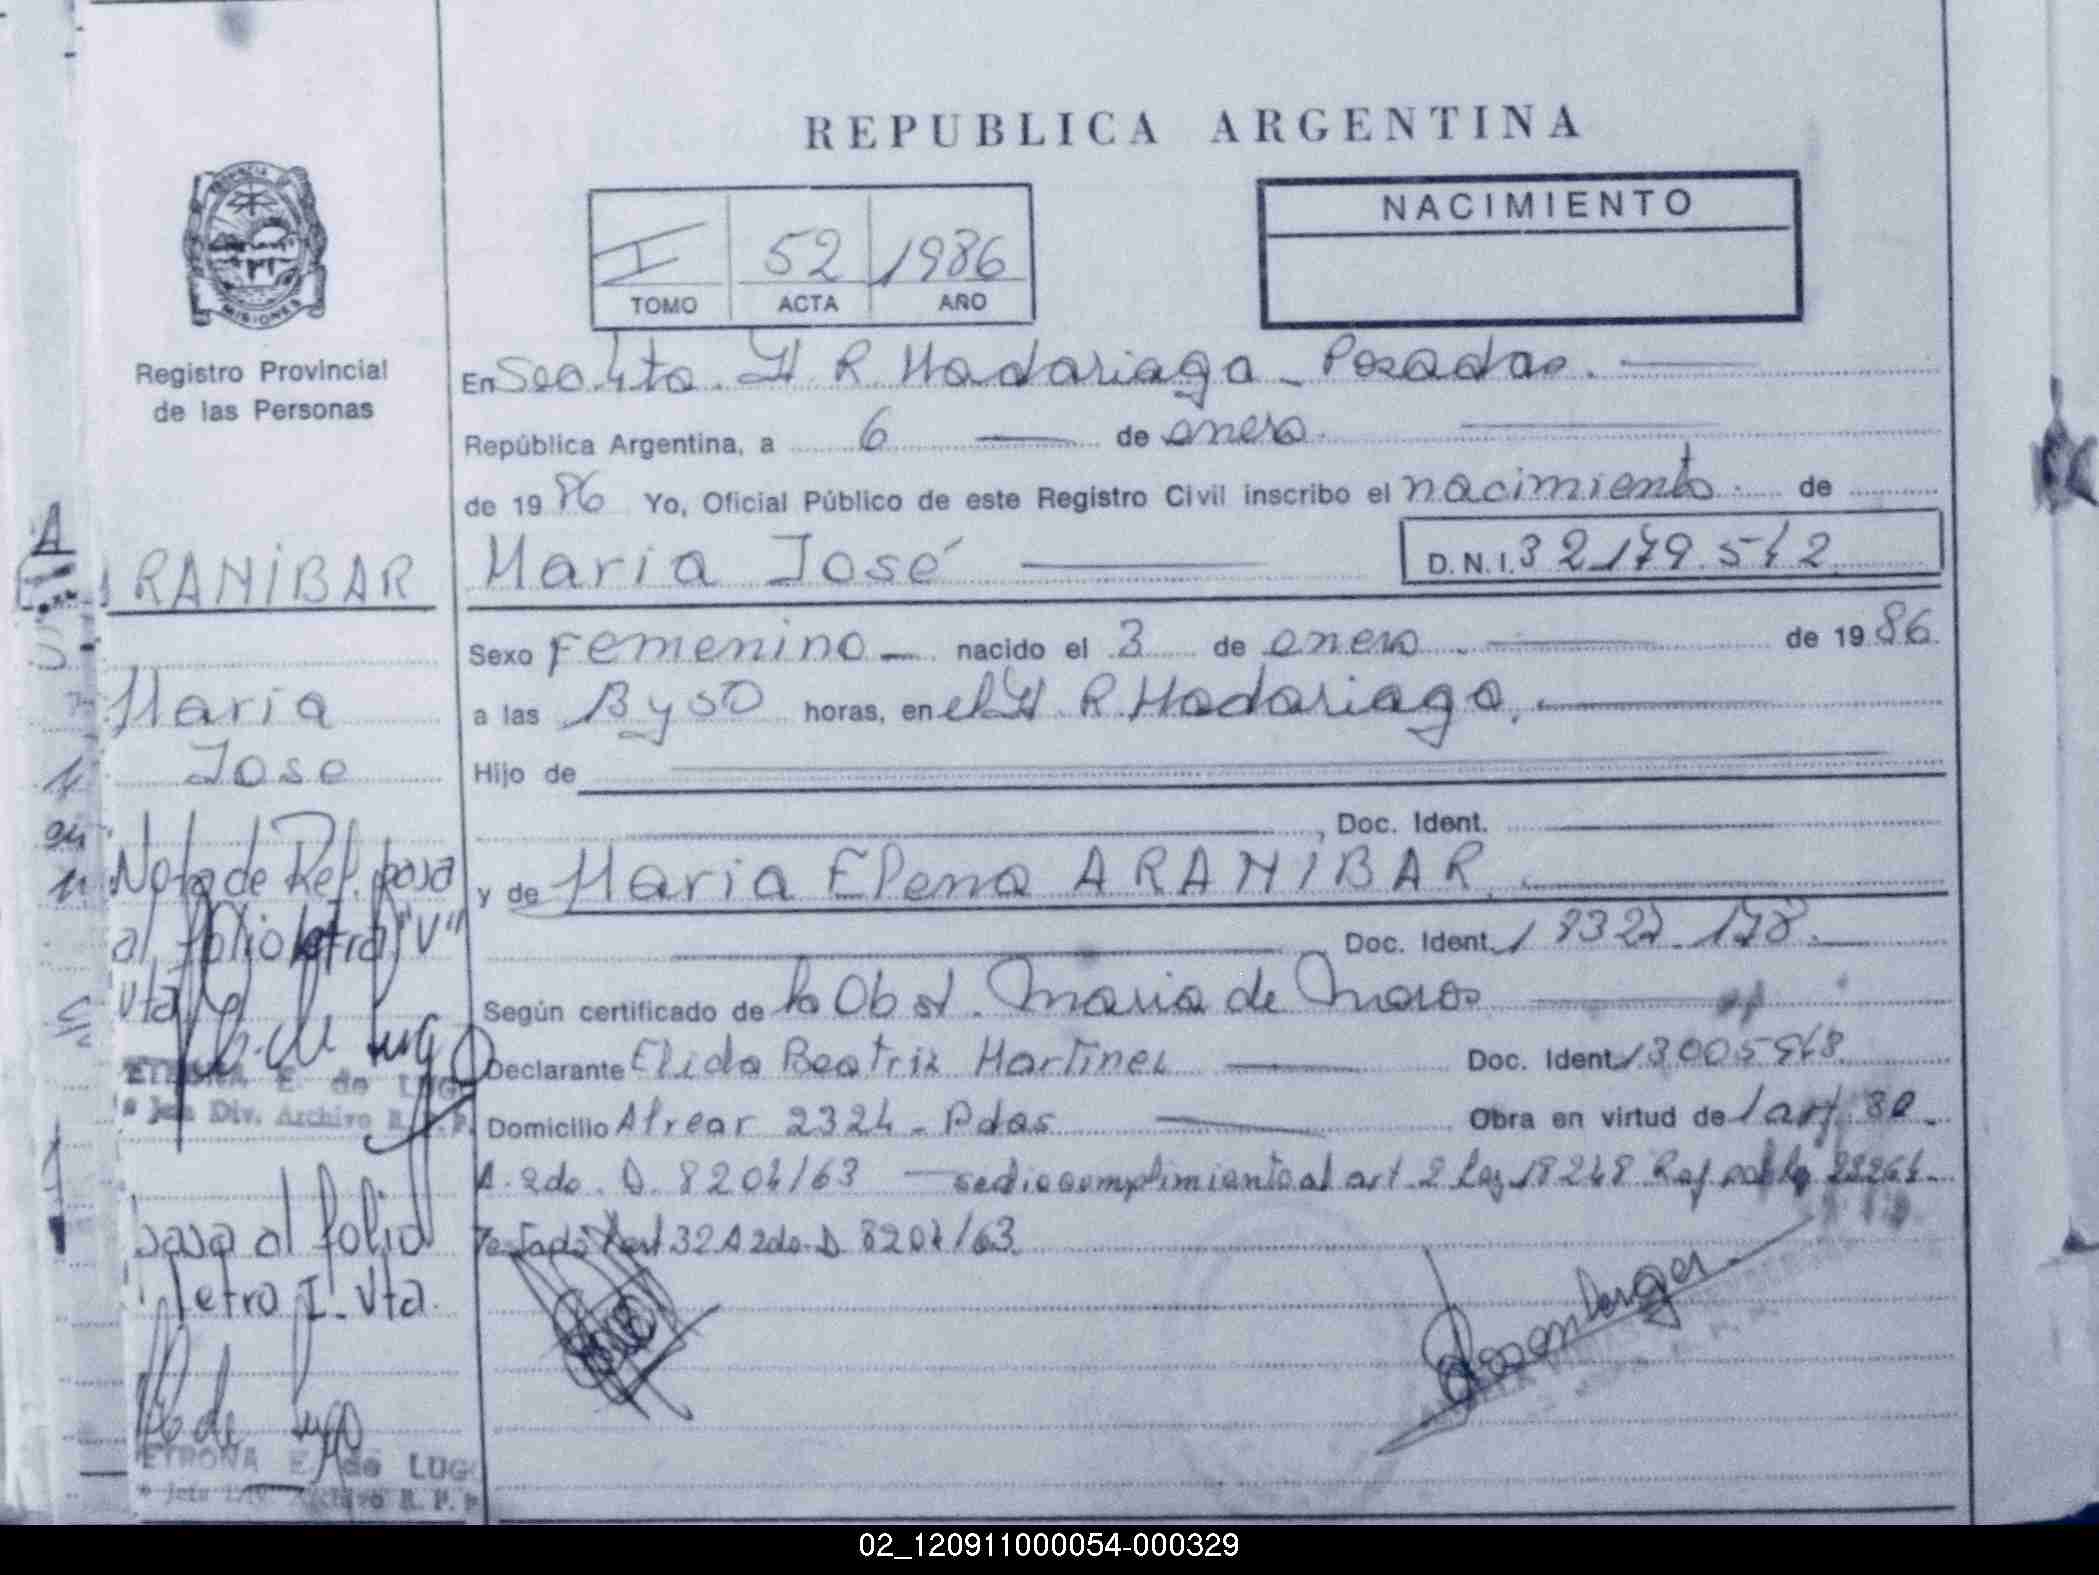 REPUBLICA ARGENTINA
PROVINCIA
MISIONES
Registro Provincial
de las Personas
I 52 1986
TOMO ACTA AÑO
NACIMIENTO
En Secc. 4ta. H. R. Madariaga - Posadas.
República Argentina, a 6 de enero
de 19 86 Yo, Oficial Público de este Registro Civil inscribo el nacimiento de
Maria José D.N.I. 32.179.542
Sexo Femenino nacido el 3 de enero de 19 86
a las 13 y 50 horas, en el H. R. Madariaga,
Hijo de
, Doc. Ident.
y de Maria Elena ARANIBAR
Doc. Ident. 18327.178.
Según certificado de la Obst. Maria de
Declarante Elida Beatriz Martinez Doc. Ident. 13005948
Domicilio Alvear 2324 - Pdas Obra en virtud de art. 30
A. 2do. D. 8204/63 se dio cumplimiento al art. 2 Ley 18248 Ref. por Ley 23264
Testado art 32 A 2do. D 8204/63
Rosenberger
ARANIBAR
Maria
Jose
Nota de Ref. pasa
al folio letra "V"
vta
E. de LUGO
Jefa Div. Archivo R. P. P.
pasa al folio
letra I - Vta.
E. de LUGO
Jefa Div. Archivo R. P. P.
02_120911000054-000329